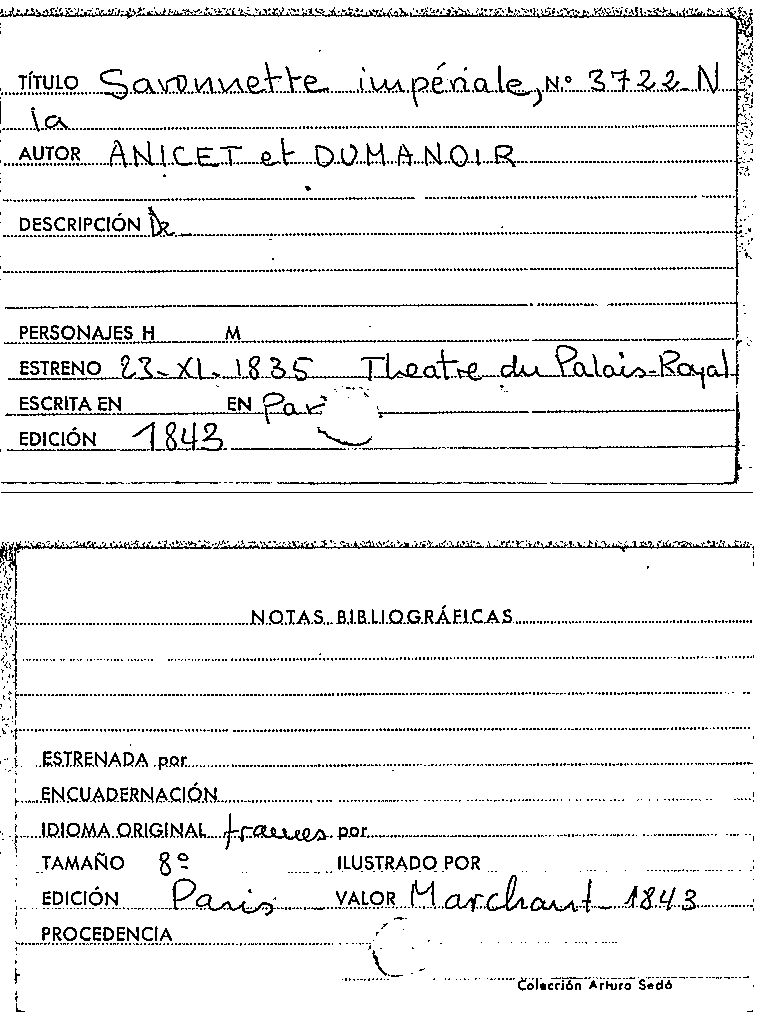 TÍTULO Savonnette impériale, N.º 3722-N
la
AUTOR ANICET et DUMANOIR
DESCRIPCIÓN
PERSONAJES H M
ESTRENO 23-XI-1835 Theatre du Palais-Royal
ESCRITA EN EN Par
EDICIÓN 1843
NOTAS BIBLIOGRÁFICAS
ESTRENADA por
ENCUADERNACIÓN
IDIOMA ORIGINAL frances por
TAMAÑO 8º ILUSTRADO POR
EDICIÓN Paris VALOR Marchant 1843
PROCEDENCIA
Colección Arturo Sedó